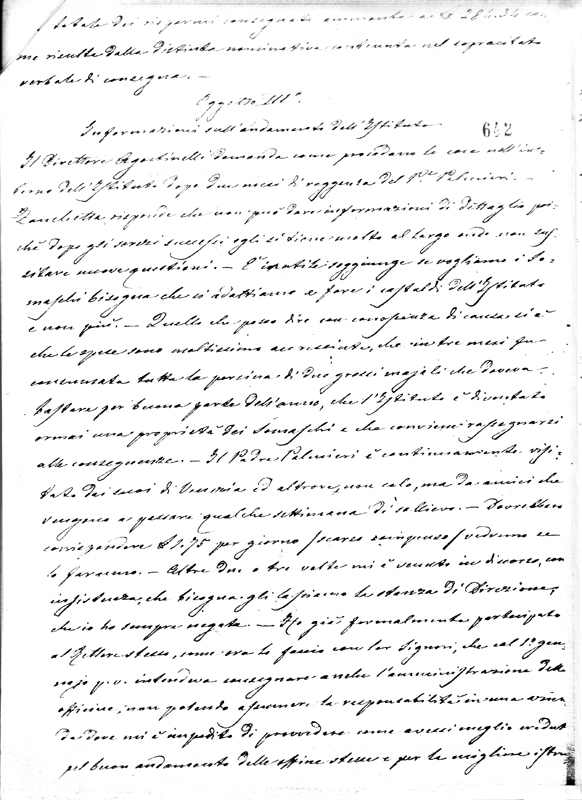 totale dei risparmi consegnati ammonta a £ 284.34 co-
me risulta dalla distinta nominativa contenuta nel sopracitato
verbale di consegna. —
Oggetto III°.
Informazioni sull'andamento dell'Istituto
642
Il Direttore Agostinelli domanda come procedano le cose nell'in-
terno dell'Istituto dopo due mesi di reggenza del Pdre Palmieri. —
Zanchetta risponde che non può dare informazioni di dettaglio poi-
chè dopo gli screzi successi egli si tiene molto al largo onde non su-
scitare nuove questioni. — È inutile soggiunge se vogliamo i So-
maschi bisogna che ci adattiamo a fare i castaldi dell'Istituto
e non più. — Quello che posso dire con conoscenza di causa si è
che le spese sono moltissimo accresciute, che in tre mesi fu
consumata tutta la porcina di due grossi majali che doveva
bastare per buona parte dell'anno, che l'Istituto è diventato
ormai una proprietà dei Somaschi e che conviene rassegnarsi
alle conseguenze. — Il Padre Palmieri è continuamente visi-
tato dai suoi di Venezia ed altrove, non solo, ma da amici che
vengono a passare qualche settimana di sollievo. — Dovrebbero
corrispondere £ 1.75 per giorno (scarso compenso) vedremo se
lo faranno. — Altre due o tre volte mi è venuto in discorso, con
insistenza, che bisogna gli lasciamo la stanza di Direzione,
che io ho sempre negato. — Ho già formalmente partecipato
al Rettore stesso, come ora lo faccio con lor Signori, che col 1° gen-
najo p.v. intendeva consegnare anche l'amministrazione delle
officine, non potendo assumere la responsabilità in una azien-
da dove mi è impedito di provvedere come avessi meglio creduto
pel buon andamento delle offine stesse e per la migliore istru-